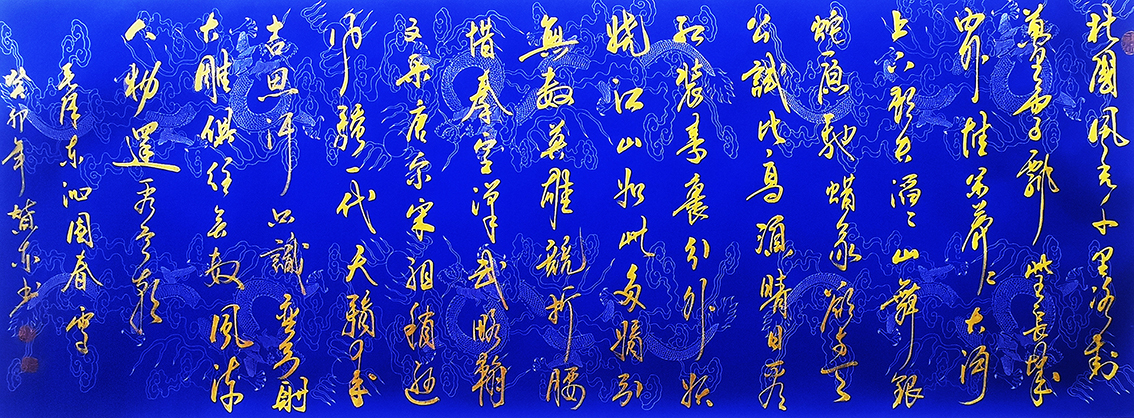 北國風光千里冰封
萬里雪飄望長城
內外惟余莽々大河
上下頓失滔々山舞銀
蛇原馳蠟象欲與天
公試比高須晴日看
紅裝素裹分外妖
嬈江山如此多嬌引
無數英雄競折腰
惜秦皇漢武略輸
文采唐宗宋祖稍遜
風騷一代天驕成
吉思汗只識彎弓射
大雕俱往矣數風流
人物還看今朝
毛澤东沁園春雪
癸卯年东书